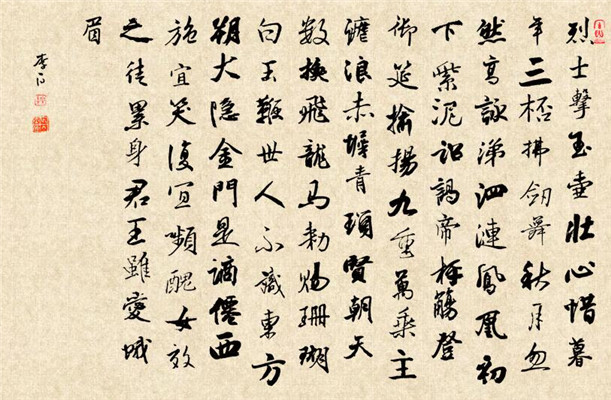 烈士擊玉壺壯心惜暮
年三桮拂劍舞秋月忽
然高詠涕泗漣鳳凰初
下紫泥詔謁帝稱觴登
御筵揄揚九重萬乘主
謔浪赤墀青瑣賢朝天
數換飛龍馬勑賜珊瑚
白玉鞭世人不識東方
朔大隱金門是謫僊西
施宜笑復宜頻醜女效
之徒累身君王雖愛蛾
眉
李白